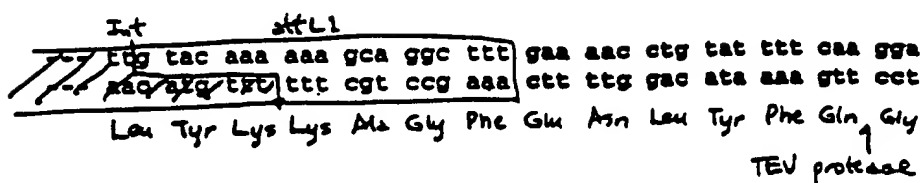 Int attL1
--- ttg tac aaa aaa gca ggc ttt gaa aac ctg tat ttt caa gga
--- aac atg ttt ttt cgt ccg aaa ctt ttg gac ata aaa gtt cct
Leu Tyr Lys Lys Ala Gly Phe Glu Asn Leu Tyr Phe Gln Gly
TEV protease